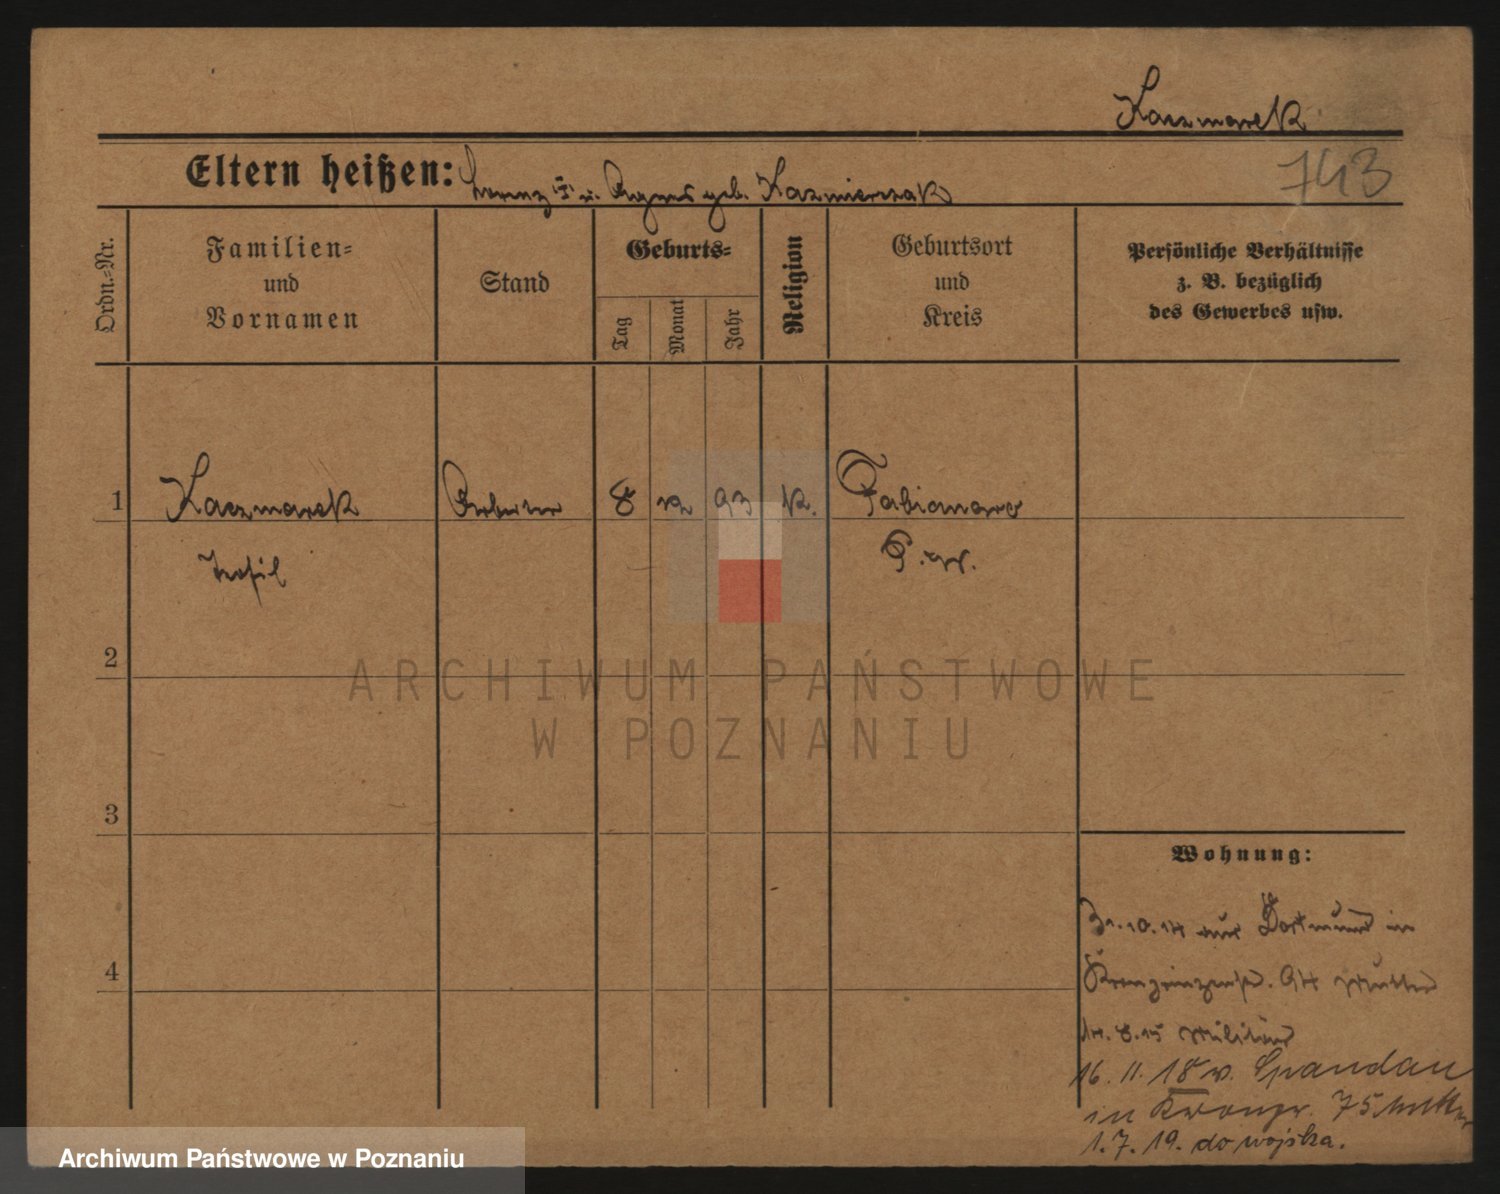 Kaczmarek
Eltern heißen: Lorenz u. Agnes geb. Kazmierczak
743
Ordn.-Nr.
Familien-
und
Vornamen
Stand
Geburts-
Tag
Monat
Jahr
Religion
Geburtsort
und
Kreis
Persönliche Verhältnisse
z. B. bezüglich
des Gewerbes usw.
1 Kaczmarek Arbeiter 8 12 93 K. Fabianowo
Teofil P. W.
2
3
4
Wohnung:
31.10.14 aus Dortmund in
Kronprinzenstr. 94 Mutter
14.8.15 Militär
16.11.18 v. Spandau
in Kronpr. 75 Mutter
1.7.19. do wojska.
ARCHIWUM PAŃSTWOWE
W POZNANIU
Archiwum Państwowe w Poznaniu